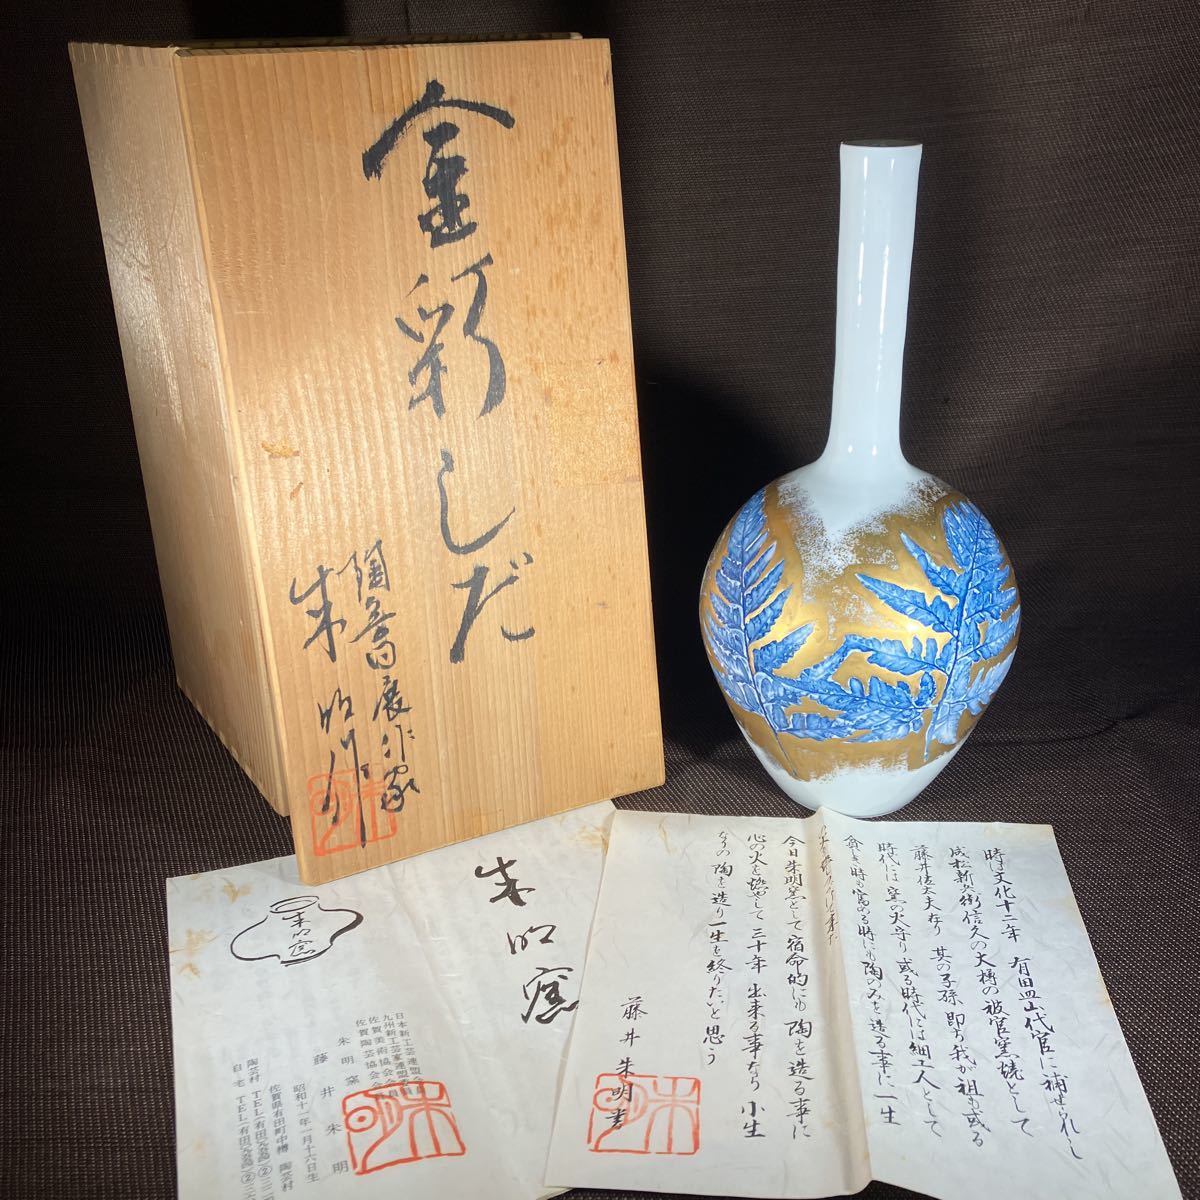 金彩しだ
陶芸展作家
朱明作
朱明窯
朱明窯
日本新工芸連盟会員
九州新工芸家連盟委員
佐賀美術協会会員
佐賀陶芸協会会員
朱明窯
藤井朱明
昭和十一年一月十六日生
佐賀県有田町中樽 陶芸村
陶芸村 TEL(有田
自宅 TEL(有田
時は文化十二年 有田皿山代官に補せられし
成松新兵衛信久の大樽の被官窯焼として
藤井佐太夫なり 其の子孫 即ち我が祖も或る
時代には窯の火守り或る時代には細工人として
貧しき時も富める時にも陶のみを造る事に一生
今日朱明窯として宿命的にも陶を造る事に
心の火を燃やして三十年 出来る事なら小生
なりの陶を造り一生を終りたいと思う
藤井朱明書